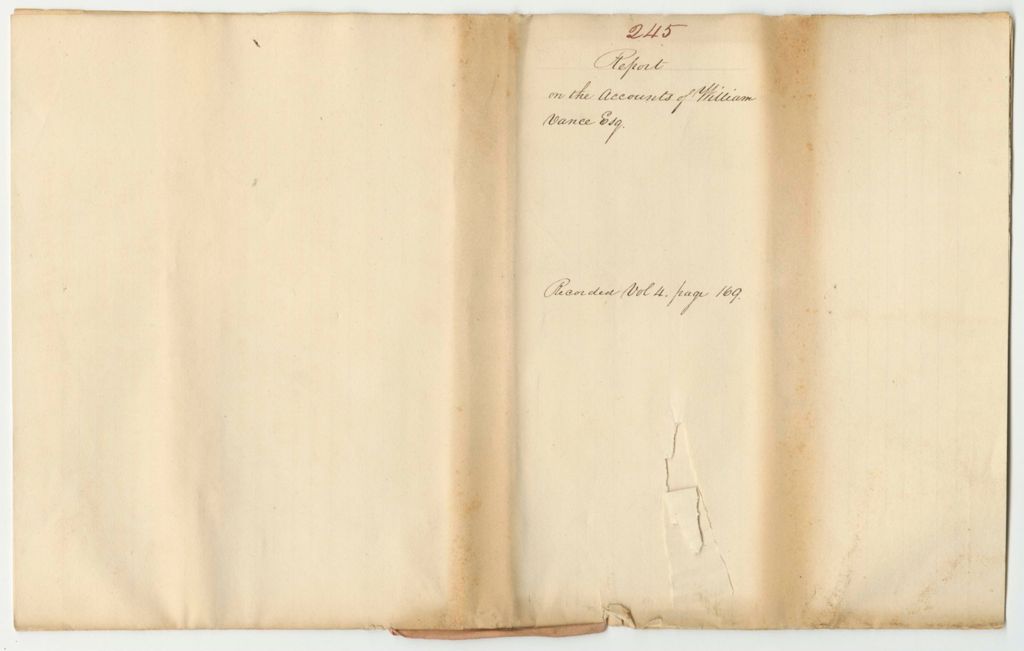 245
Report
on the Accounts of William
Vance Esq.
Recorded Vol 4. page 169.